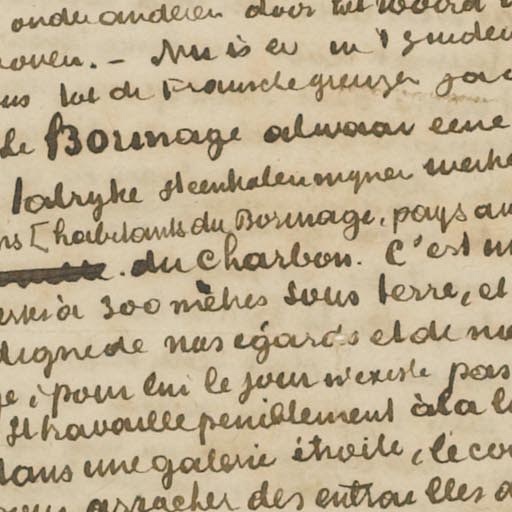 onder anderen door het woord
. – Nu is er in 't Zuiden
tot de Fransche grenzen
Le Borinage alwaar eene
talryke steenkolenmyner werk
[habitants du Borinage, pays au
du charbon. C'est un
300 mètres sous terre, et
digne de nos égards et de no
; pour lui le jour n'existe pas
Il travaille peniblement à la l
dans une galerie étroite, le cor
arracher des entrailles d